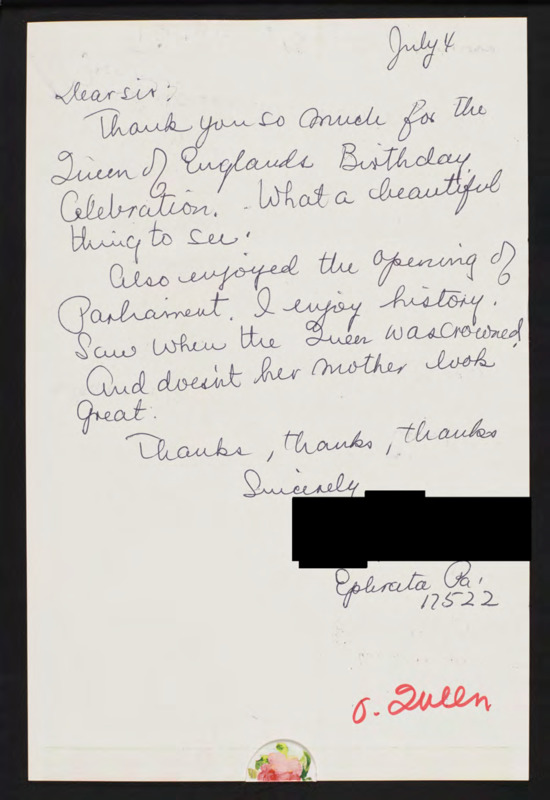 July 4
Dear sir:
Thank you so much for the
Queen of Englands Birthday
Celebration. What a beautiful
thing to see.
Also enjoyed the opening of
Parliament. I enjoy history.
Saw when the Queen was crowned.
And doesn't her mother look
great.
Thanks, thanks, thanks
Sincerely
Ephrata Pa.
17522
o. Queen